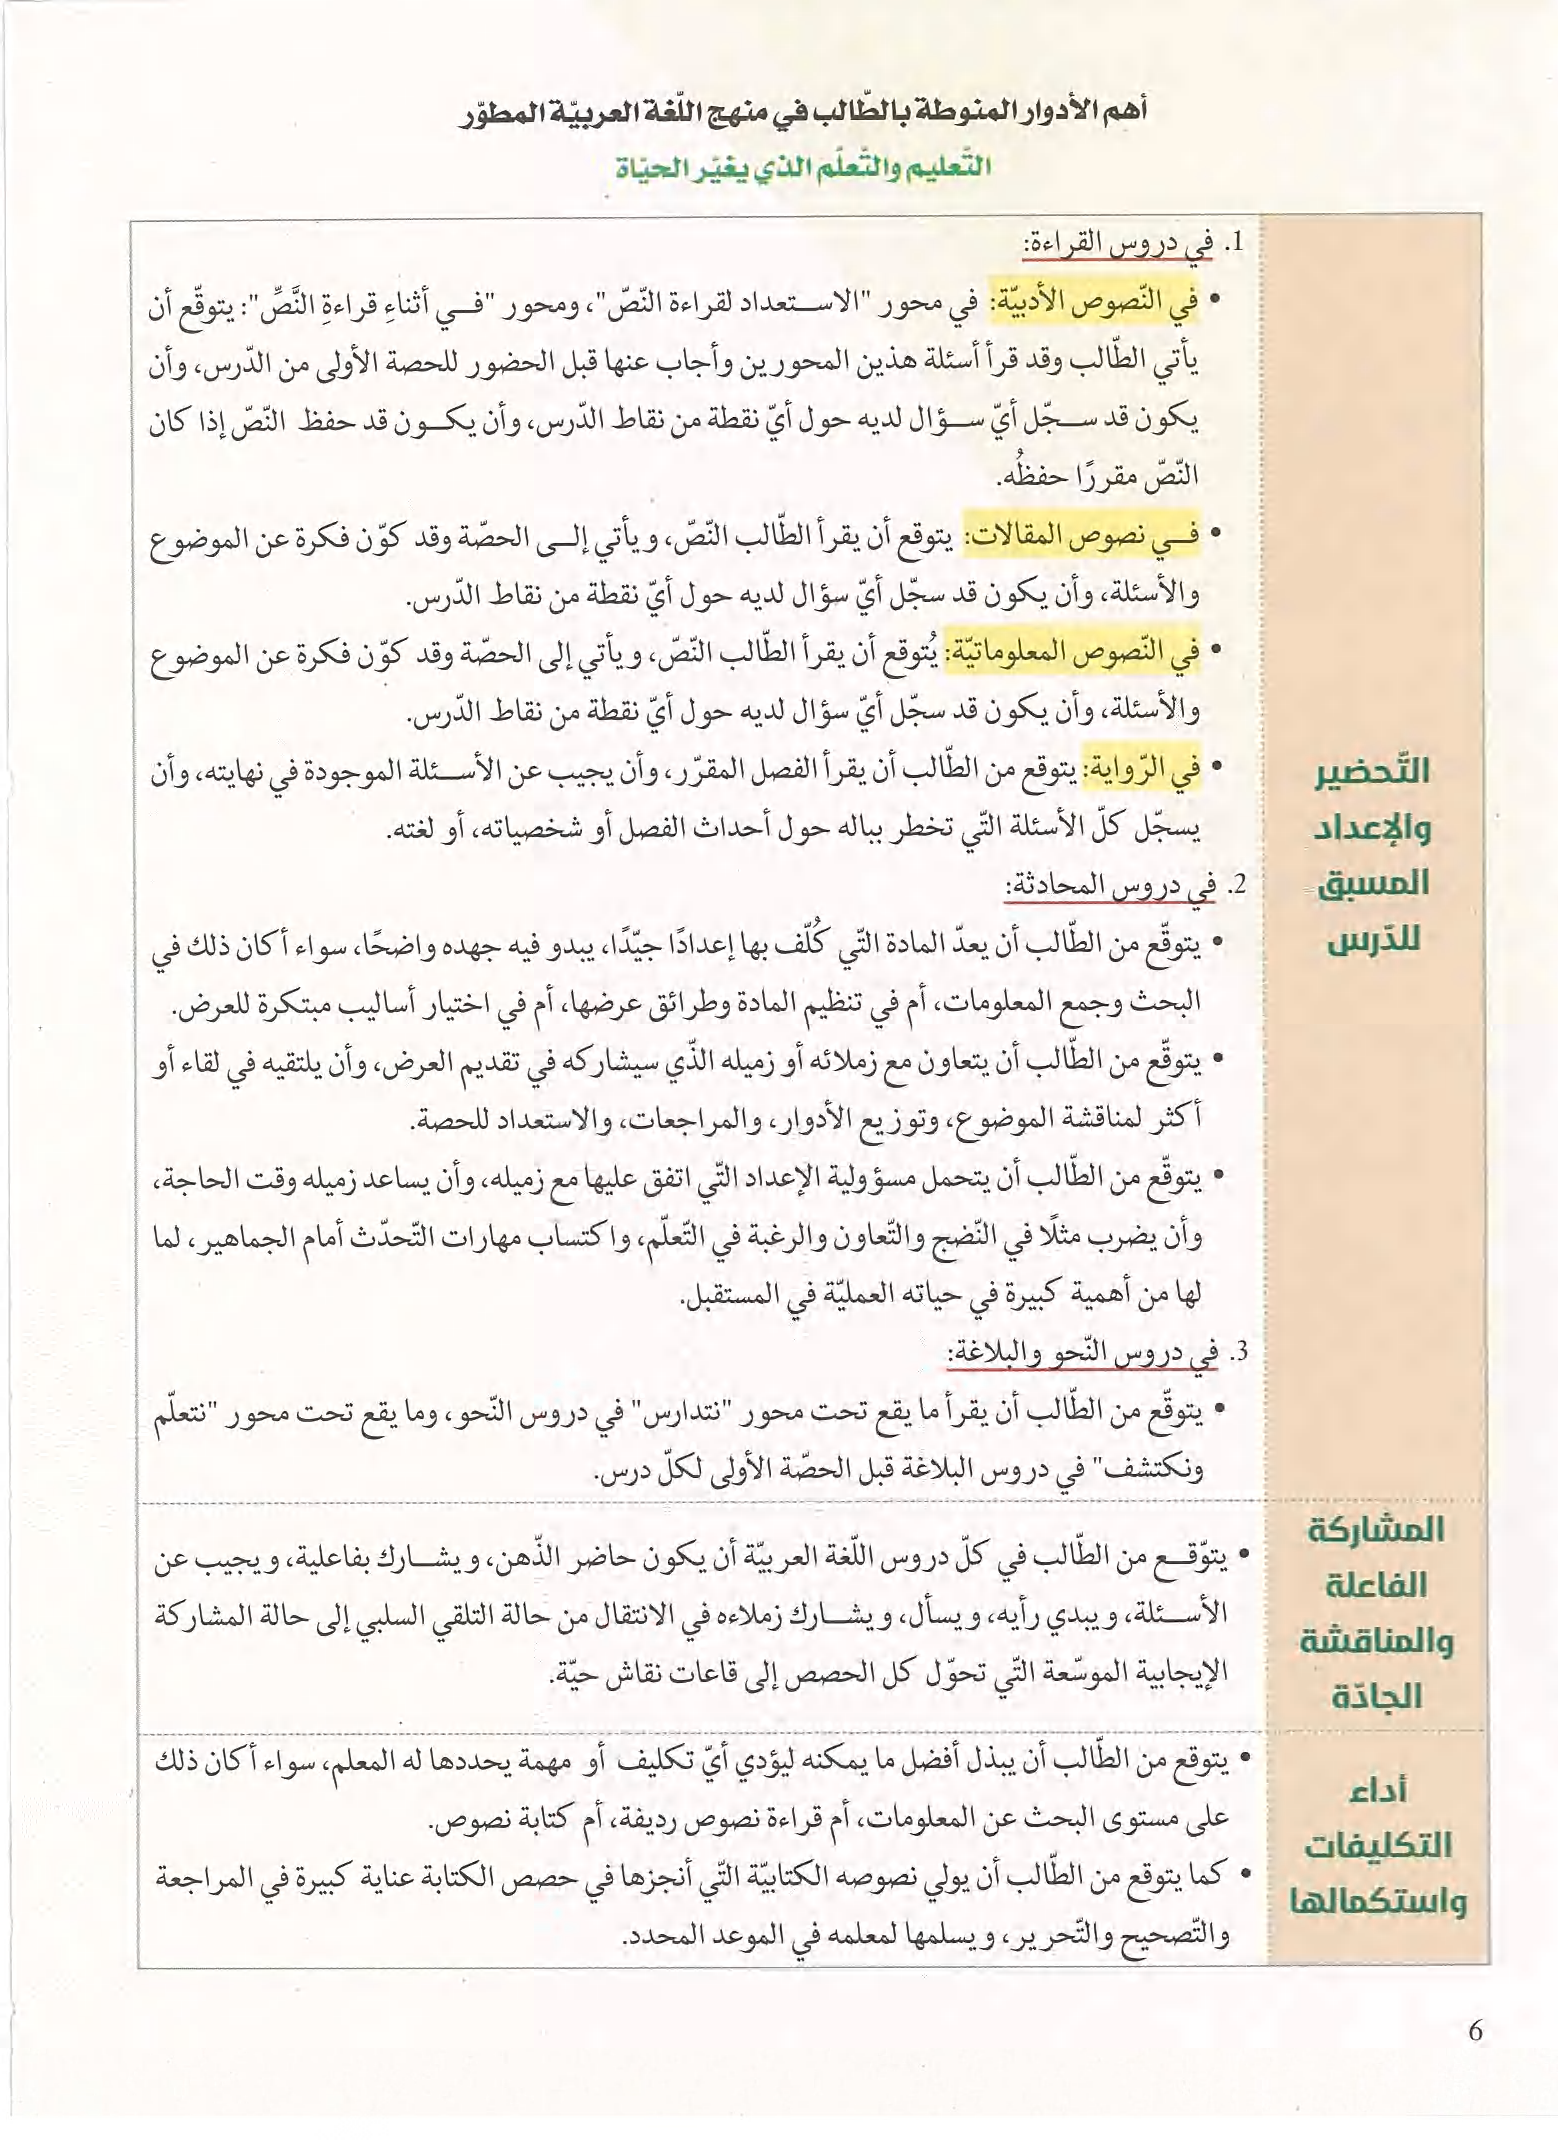 أهم الأدوار المنوطة بالطّالب في منهج اللّغة العربيّة المطوّر
التّعليم والتّعلّم الذي يغيّر الحيّاة
التّحضير
والإعداد
المسبق
للدّرس
1. في دروس القراءة:
• في النّصوص الأدبيّة: في محور "الاستعداد لقراءة النّصّ"، ومحور "في أثناءِ قراءةِ النَّصِّ": يتوقّع أن
يأتي الطّالب وقد قرأ أسئلة هذين المحورين وأجاب عنها قبل الحضور للحصة الأولى من الدّرس، وأن
يكون قد سجّل أيّ سؤال لديه حول أيّ نقطة من نقاط الدّرس، وأن يكون قد حفظ النّصّ إذا كان
النّصّ مقررًا حفظُه.
• في نصوص المقالات: يتوقع أن يقرأ الطّالب النّصّ، ويأتي إلى الحصّة وقد كوّن فكرة عن الموضوع
والأسئلة، وأن يكون قد سجّل أيّ سؤال لديه حول أيّ نقطة من نقاط الدّرس.
• في النّصوص المعلوماتيّة: يُتوقع أن يقرأ الطّالب النّصّ، ويأتي إلى الحصّة وقد كوّن فكرة عن الموضوع
والأسئلة، وأن يكون قد سجّل أيّ سؤال لديه حول أيّ نقطة من نقاط الدّرس.
• في الرّواية: يتوقع من الطّالب أن يقرأ الفصل المقرّر، وأن يجيب عن الأسئلة الموجودة في نهايته، وأن
يسجّل كلّ الأسئلة التّي تخطر بباله حول أحداث الفصل أو شخصياته، أو لغته.
2. في دروس المحادثة:
• يتوقّع من الطّالب أن يعدّ المادة التّي كُلّف بها إعدادًا جيّدًا، يبدو فيه جهده واضحًا، سواء أكان ذلك في
البحث وجمع المعلومات، أم في تنظيم المادة وطرائق عرضها، أم في اختيار أساليب مبتكرة للعرض.
• يتوقّع من الطّالب أن يتعاون مع زملائه أو زميله الذّي سيشاركه في تقديم العرض، وأن يلتقيه في لقاء أو
أكثر لمناقشة الموضوع، وتوزيع الأدوار، والمراجعات، والاستعداد للحصة.
• يتوقّع من الطّالب أن يتحمل مسؤولية الإعداد التّي اتفق عليها مع زميله، وأن يساعد زميله وقت الحاجة،
وأن يضرب مثلًا في النّضج والتّعاون والرغبة في التّعلّم، واكتساب مهارات التّحدّث أمام الجماهير، لما
لها من أهمية كبيرة في حياته العمليّة في المستقبل.
3. في دروس النّحو والبلاغة:
• يتوقّع من الطّالب أن يقرأ ما يقع تحت محور "نتدارس" في دروس النّحو، وما يقع تحت محور "نتعلّم
ونكتشف" في دروس البلاغة قبل الحصّة الأولى لكلّ درس.
المشاركة
الفاعلة
والمناقشة
الجادّة
• يتوّقع من الطّالب في كلّ دروس اللّغة العربيّة أن يكون حاضر الذّهن، ويشارك بفاعلية، ويجيب عن
الأسئلة، ويبدي رأيه، ويسأل، ويشارك زملاءه في الانتقال من حالة التلقي السلبي إلى حالة المشاركة
الإيجابية الموسّعة التّي تحوّل كل الحصص إلى قاعات نقاش حيّة.
أداء
التكليفات
واستكمالها
• يتوقع من الطّالب أن يبذل أفضل ما يمكنه ليؤدي أيّ تكليف أو مهمة يحددها له المعلم، سواء أكان ذلك
على مستوى البحث عن المعلومات، أم قراءة نصوص رديفة، أم كتابة نصوص.
• كما يتوقع من الطّالب أن يولي نصوصه الكتابيّة التّي أنجزها في حصص الكتابة عناية كبيرة في المراجعة
والتّصحيح والتّحرير، ويسلمها لمعلمه في الموعد المحدد.
6